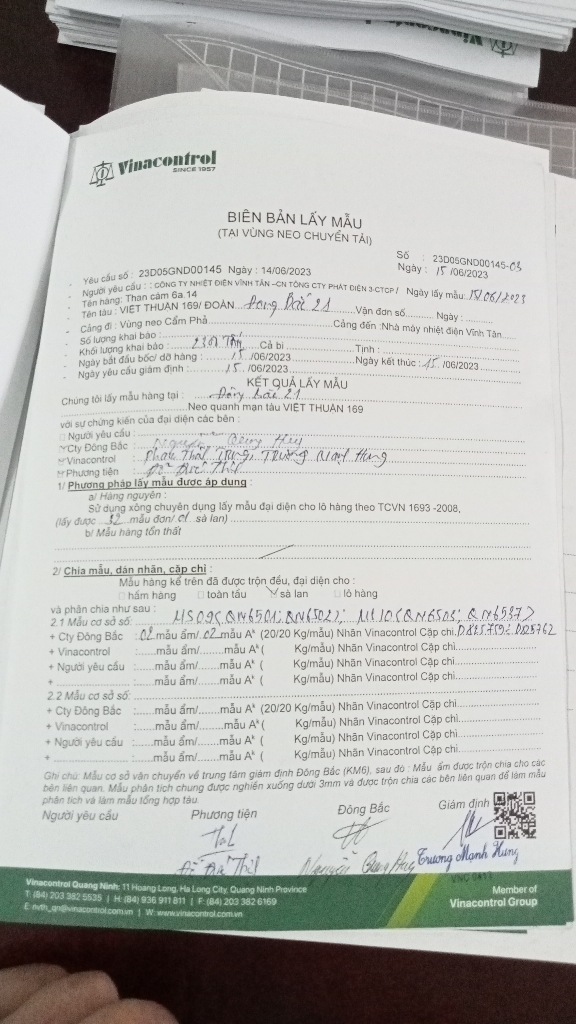 Vinacontrol
SINCE 1957
BIÊN BẢN LẤY MẪU
(TẠI VÙNG NEO CHUYỂN TẢI)
Số : 23D05GND00145-03
Ngày : 15/06/2023
- Yêu cầu số : 23D05GND00145 Ngày : 14/06/2023
- Người yêu cầu : : CÔNG TY NHIỆT ĐIỆN VĨNH TÂN –CN TỔNG CTY PHÁT ĐIỆN 3-CTCP / Ngày lấy mẫu: 15/06/2023
- Tên hàng: Than cám 6a.14
- Tên tàu : VIỆT THUẬN 169/ ĐOÀN Đông Bắc 21 Vận đơn số.......... Ngày : .........
- Cảng đi : Vùng neo Cẩm Phả Cảng đến :Nhà máy nhiệt điện Vĩnh Tân
- Số lượng khai báo :
- Khối lượng khai báo : Cả bì Tịnh :
- Ngày bắt đầu bốc/ dỡ hàng : 15 /06/2023 Ngày kết thúc : 15 /06/2023
- Ngày yêu cầu giám định : 15 /06/2023
KẾT QUẢ LẤY MẪU
Chúng tôi lấy mẫu hàng tại : Đông Bắc 21
Neo quanh mạn tàu VIỆT THUẬN 169
với sự chứng kiến của đại diện các bên :
Người yêu cầu :
Cty Đông Bắc : Nguyễn Quang Huy
Vinacontrol : Trương Mạnh Hùng
Phương tiện :
1/ Phương pháp lấy mẫu được áp dụng :
a/ Hàng nguyên :
Sử dụng xông chuyên dụng lấy mẫu đại diện cho lô hàng theo TCVN 1693 -2008,
(lấy được 32 mẫu đơn/ 01 sà lan)
b/ Mẫu hàng tổn thất
2/ Chia mẫu, dán nhãn, cặp chì :
Mẫu hàng kể trên đã được trộn đều, đại diện cho :
hầm hàng toàn tấu sà lan lô hàng
và phân chia như sau :
2.1 Mẫu cơ sở số: MS09(QN6501; QN6502); MS10(QN6505; QN6537)
+ Cty Đông Bắc : 02 mẫu ẩm/ 02 mẫu Aᵏ (20/20 Kg/mẫu) Nhãn Vinacontrol Cặp chì.
+ Vinacontrol :......mẫu ẩm/.......mẫu Aᵏ ( Kg/mẫu) Nhãn Vinacontrol Cặp chì
+ Người yêu cầu :......mẫu ẩm/.......mẫu Aᵏ ( Kg/mẫu) Nhãn Vinacontrol Cặp chì
+ :......mẫu ẩm/.......mẫu Aᵏ ( Kg/mẫu) Nhãn Vinacontrol Cặp chì
2.2 Mẫu cơ sở số:
+ Cty Đông Bắc :......mẫu ẩm/.......mẫu Aᵏ (20/20 Kg/mẫu) Nhãn Vinacontrol Cặp chì
+ Vinacontrol :......mẫu ẩm/.......mẫu Aᵏ ( Kg/mẫu) Nhãn Vinacontrol Cặp chì
+ Người yêu cầu :......mẫu ẩm/.......mẫu Aᵏ ( Kg/mẫu) Nhãn Vinacontrol Cặp chì
+ :......mẫu ẩm/.......mẫu Aᵏ ( Kg/mẫu) Nhãn Vinacontrol Cặp chì
Ghi chú: Mẫu cơ sở vận chuyển về trung tâm giám định Đông Bắc (KM6), sau đó : Mẫu ẩm được trộn chia cho các
bên liên quan. Mẫu phân tích chung được nghiền xuống dưới 3mm và được trộn chia các bên liên quan để làm mẫu
phân tích và làm mẫu tổng hợp tàu.
Người yêu cầu Phương tiện Đông Bắc Giám định
Nguyễn Quang Huy Trương Mạnh Hùng
Vinacontrol Quang Ninh: 11 Hoang Long, Ha Long City, Quang Ninh Province
T: (84) 203 382 5535 | H: (84) 936 911 811 | F: (84) 203 382 6169
E: nvth_qn@vinacontrol.com.vn | W: www.vinacontrol.com.vn
Member of
Vinacontrol Group